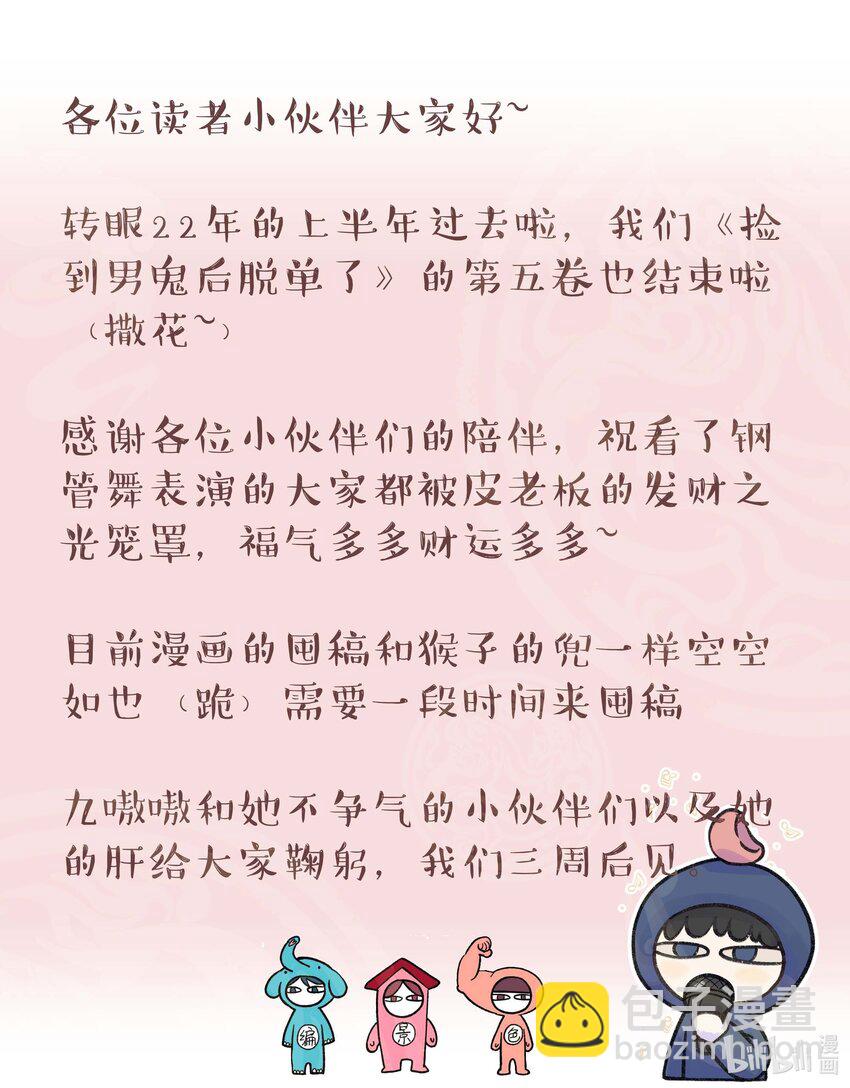 各位读者小伙伴大家好~
转眼22年的上半年过去啦，我们《捡
到男鬼后脱单了》的第五卷也结束啦
（撒花~）
感谢各位小伙伴们的陪伴，祝看了钢
管舞表演的大家都被皮老板的发财之
光笼罩，福气多多财运多多~
目前漫画的囤稿和猴子的兜一样空空
如也（跪）需要一段时间来囤稿
九嗷嗷和她不争气的小伙伴们以及她
的肝给大家鞠躬，我们三周后见。
编
景
色
包子漫畫
baozimh.com
bilibili
漫画